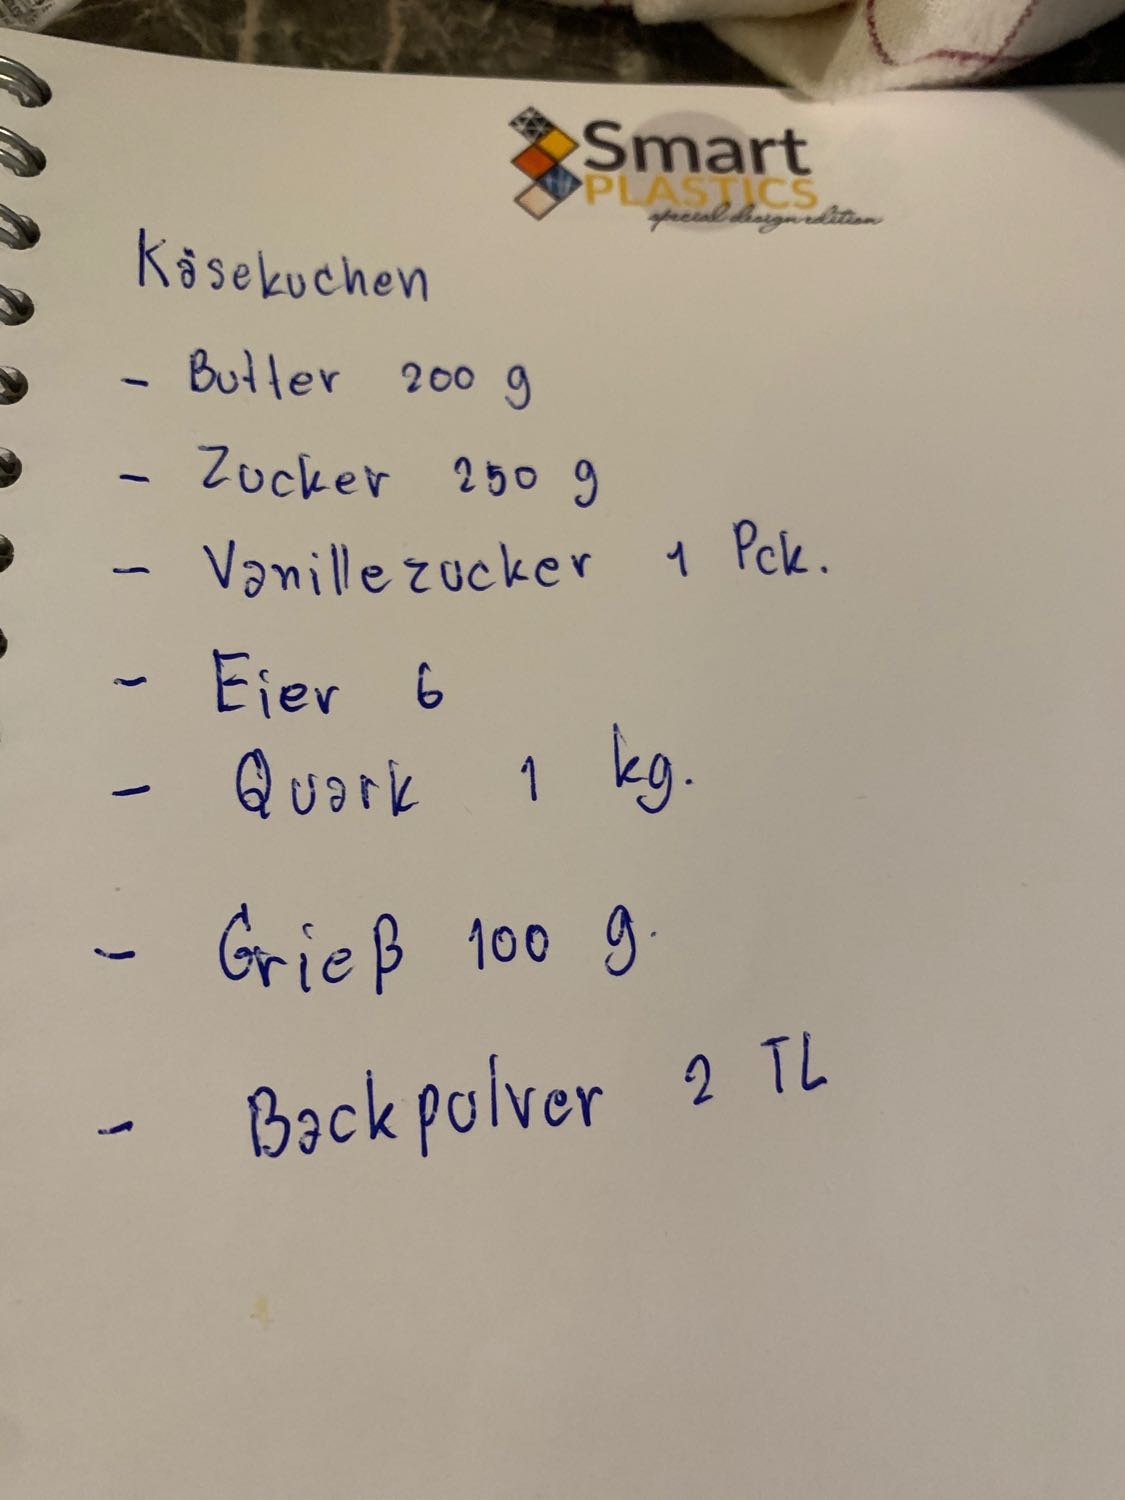 Smart
PLASTICS
special design edition
Käsekuchen
- Butter 200 g
- Zucker 250 g
- Vanillezucker 1 Pck.
- Eier 6
- Quark 1 kg.
- Grieß 100 g.
- Backpulver 2 TL